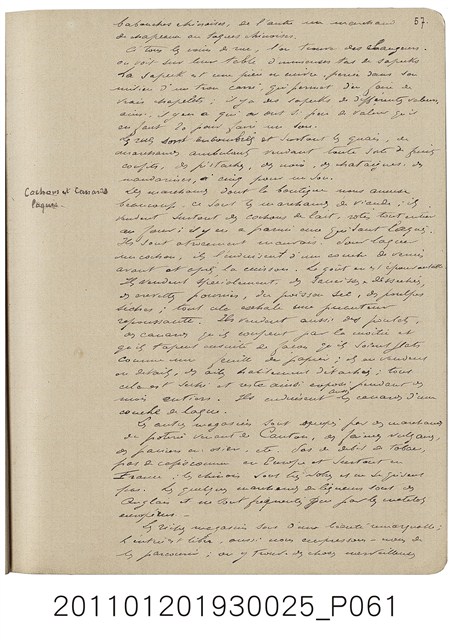 57
babouches chinoises, de l'autre un marchand
de chapeaux ou toques chinoises.
A tous les coins de rue, l'on trouve des changeurs.
on voit sur leur table d'immenses tas de sapèques
La sapèque est une pièce en cuivre, percée dans son
milieu d'un trou carré, qui permet d'en faire de
vrais chapelets; il y a des sapèques de différentes valeurs,
ainsi il y en a qui ont si peu de valeur qu'il
en faut pour faire un sou.
Les rues sont encombrées et surtout les quais, de
marchands ambulants vendant toute sorte de fruits
des pistaches, des noix, des chataignes, des
mandarines, à cinq pour un sou.
Les marchands dont la boutique nous amuse
beaucoup, ce sont les marchands de viande; ils
vendent surtout des cochons de lait, rôtis tout entier
au four; il y en a parmi eux qui sont laqués.
Ils sont atrocement mauvais. Pour laquer
un cochon, ils l'enduisent d'une couche de vernis
avant et après la cuisson. Le goût en est épouvantable
Ils vendent également, des saucisses desséchées,
des crevettes pourries, du poisson sec, des poulpes
séchées; tout cela exhale une puanteur
repoussante. Ils vendent aussi des poulets,
des canards qu'ils coupent par la moitié et
qu'ils tapent ensuite de façon qu'ils soient plats
comme une feuille de papier; ils en vendent
au détail, des ails habilement détachés; tout
cela est séché et reste ainsi exposé pendant des
mois entiers. Ils enduisent aussi les canards d'une
couche de laque.
Cochons et Canards
laqués.
Les autres magasins sont occupés par des marchands
de poterie venant de Canton, des faïences vulgaires,
des paniers en osier, etc. Pas de débit de tabac,
pas de cafés comme en Europe et surtout en
France; les chinois sont très sobres et ne se grisent
pas. Les quelques marchands de liqueurs sont des
Anglais et ne sont fréquentés que par les matelots
européens.
Les riches magasins sont d'une beauté remarquable;
l'entrée est libre, aussi nous empressons-nous de
les parcourir; on y trouve des choses merveilleuses
201101201930025_P061